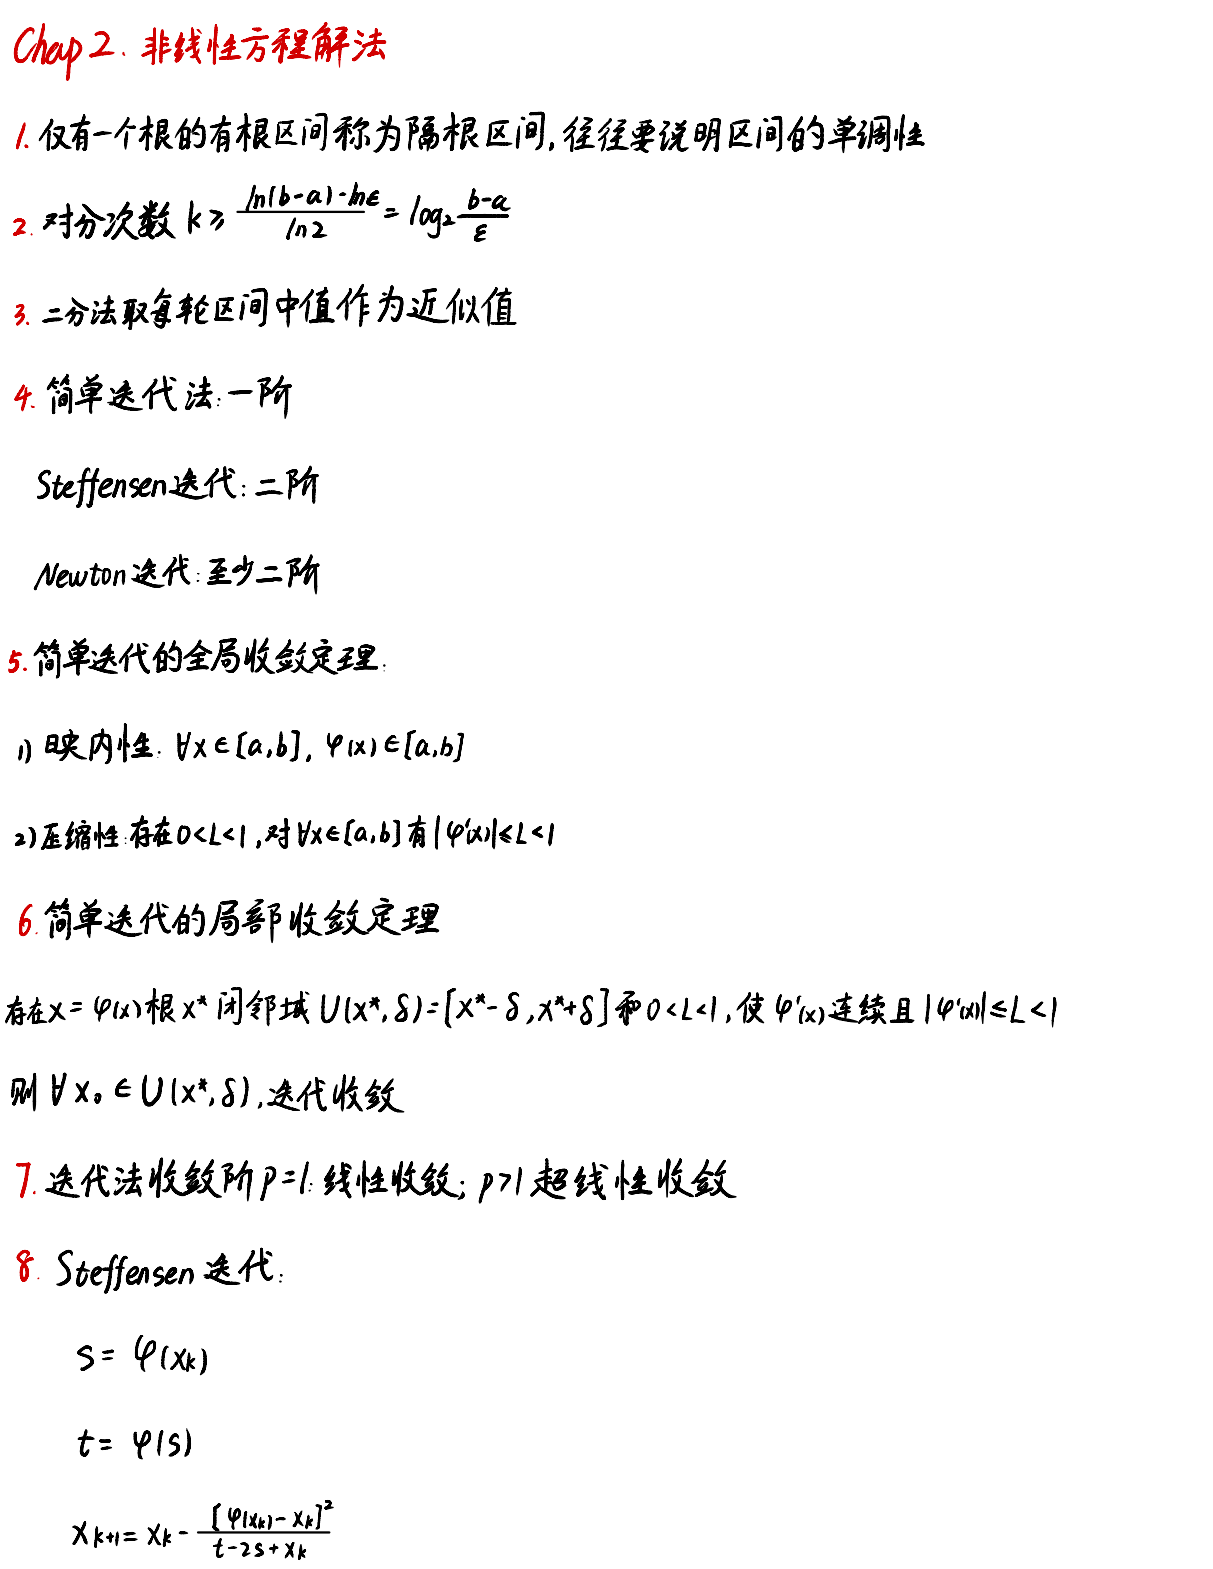 Chap 2. 非线性方程解法
1. 仅有一个根的有根区间称为隔根区间,往往要说明区间的单调性
2. 对分次数 k ≥ \frac{ln(b-a)-lnε}{ln2} = log₂\frac{b-a}{ε}
3. 二分法取每轮区间中值作为近似值
4. 简单迭代法:一阶
Steffensen迭代:二阶
Newton迭代:至少二阶
5. 简单迭代的全局收敛定理:
1) 映内性: ∀x∈[a,b], φ(x)∈[a,b]
2) 压缩性:存在0<L<1,对∀x∈[a,b]有|φ'(x)|≤L<1
6. 简单迭代的局部收敛定理
存在x=φ(x)根x*闭邻域U(x*,δ)=[x*-δ,x*+δ]和0<L<1,使φ'(x)连续且|φ'(x)|≤L<1
则∀x₀∈U(x*,δ),迭代收敛
7. 迭代法收敛阶p=1:线性收敛; p>1超线性收敛
8. Steffensen迭代:
s = φ(x_k)
t = φ(s)
x_{k+1} = x_k - \frac{[φ(x_k)-x_k]²}{t-2s+x_k}